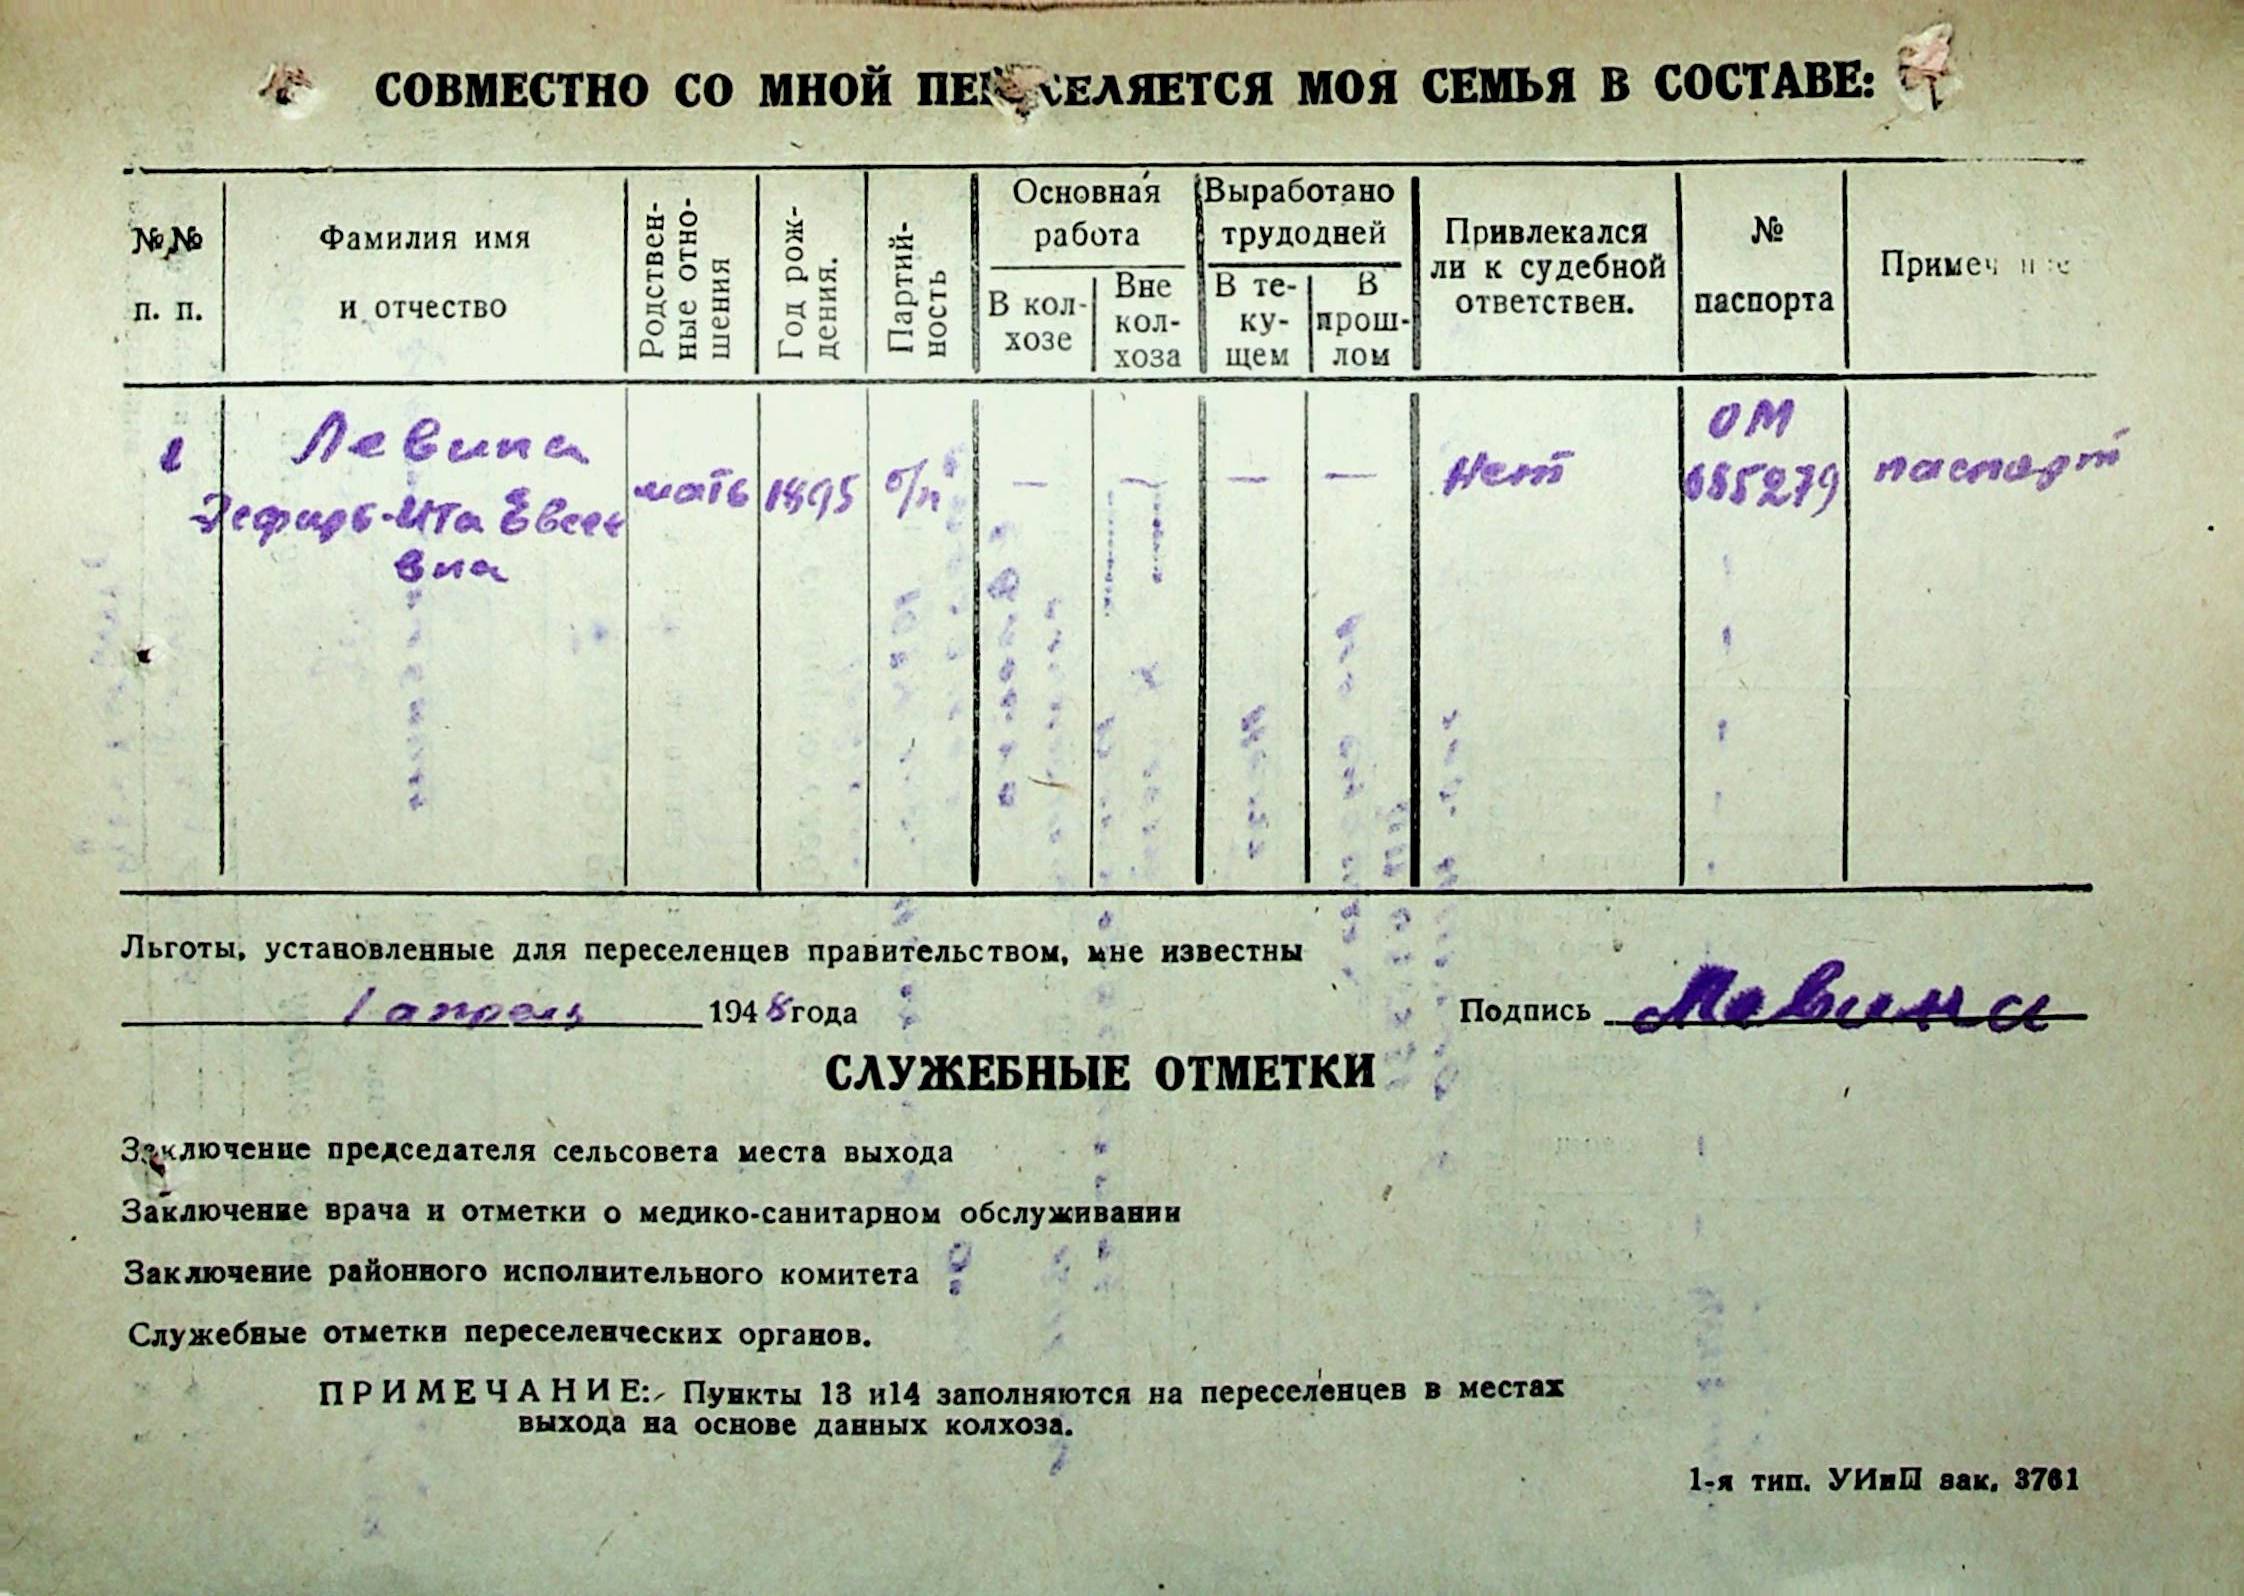 СОВМЕСТНО СО МНОЙ ПЕРЕСЕЛЯЕТСЯ МОЯ СЕМЬЯ В СОСТАВЕ:
№№ п. п.
Фамилия имя и отчество
Родствен-ные отно-шения
Год рож-дения.
Партий-ность
Основная работа
В кол-хозе
Вне кол-хоза
Выработано трудодней
В те-ку-щем
В прош-лом
Привлекался ли к судебной ответствен.
№ паспорта
Примечание
1 Левина мать 1895 б/п — — — — Нет ОМ 685279 паспорт
Эсфирь-Ита Евсее
вна
Льготы, установленные для переселенцев правительством, мне известны
1 апреля 1948 года Подпись Левина
СЛУЖЕБНЫЕ ОТМЕТКИ
Заключение председателя сельсовета места выхода
Заключение врача и отметки о медико-санитарном обслуживании
Заключение районного исполнительного комитета
Служебные отметки переселенческих органов.
ПРИМЕЧАНИЕ: Пункты 13 и14 заполняются на переселенцев в местах
выхода на основе данных колхоза.
1-я тип. УИиП зак. 3761